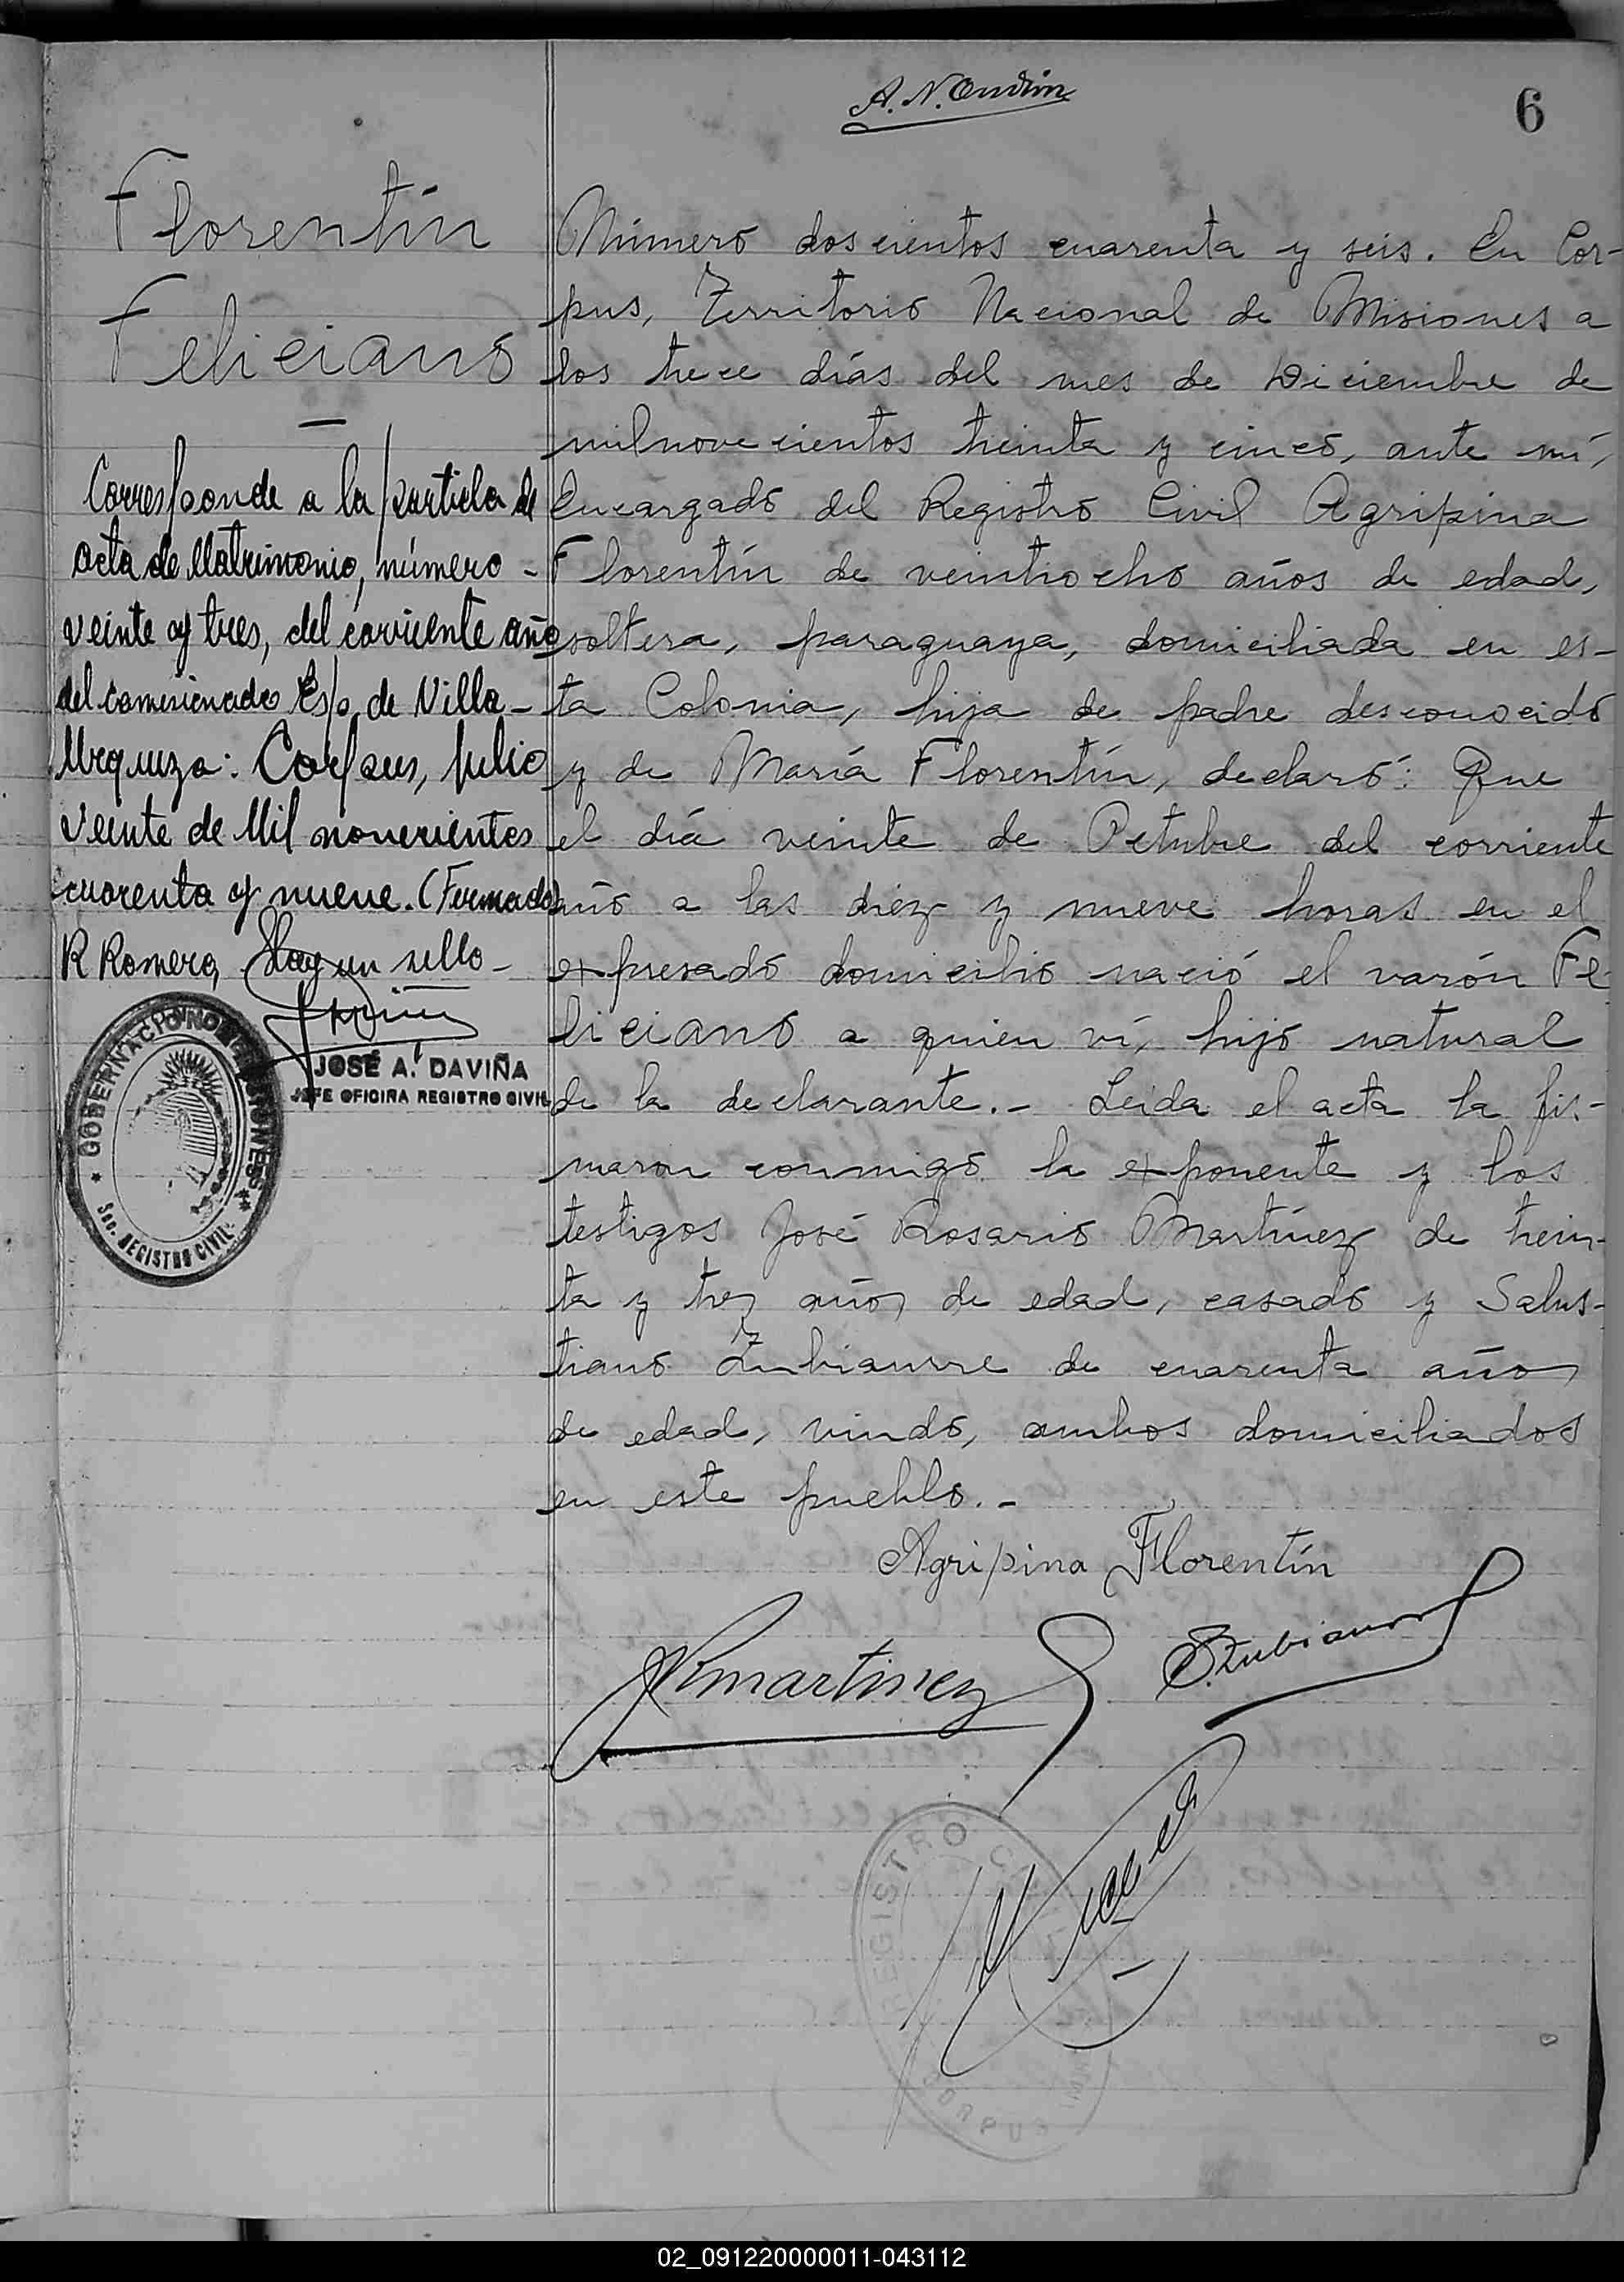 A. N.
6
Florentín
Feliciano
Corresponde a la partida de
acta de Matrimonio, número -
veinte y tres, del corriente año
del comisionado Esp. de Villa -
Urquiza: Corpus, julio
veinte de Mil novecientos
cuarenta y nueve. (Firmado)
R Romero, Hay un sello -
JOSÉ A. DAVIÑA
JEFE OFICINA REGISTRO CIVIL
GOBERNACION DE MISIONES
Sec. REGISTRO CIVIL
Número doscientos cuarenta y seis. En Cor-
pus, Territorio Nacional de Misiones a
los trece días del mes de Diciembre de
milnovecientos treinta y cinco, ante mí,
Encargado del Registro Civil Agripina
Florentín de veintiocho años de edad,
soltera, paraguaya, domiciliada en es-
ta Colonia, hija de padre desconocido
y de María Florentín, declaró: Que
el día veinte de Octubre del corriente
año a las diez y nueve horas en el
expresado domicilio nació el varón Fe-
liciano a quien ví, hijo natural
de la declarante.- Leida el acta la fir-
maron conmigo la exponente y los
testigos José Rosario Martínez de trein-
ta y tres años de edad, casado y Salus-
tiano Zubiaurre de cuarenta años
de edad, viudo, ambos domiciliados
en este pueblo.-
Agripina Florentín
JRMartinez
S. Zubiaurre
REGISTRO C
CORPUS
02_091220000011-043112